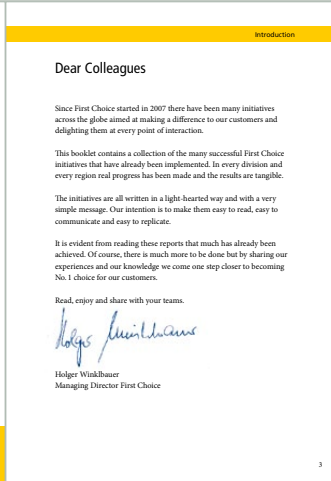 Introduction
Dear Colleagues
Since First Choice started in 2007 there have been many initiatives
across the globe aimed at making a difference to our customers and
delighting them at every point of interaction.
This booklet contains a collection of the many successful First Choice
initiatives that have already been implemented. In every division and
every region real progress has been made and the results are tangible.
The initiatives are all written in a light-hearted way and with a very
simple message. Our intention is to make them easy to read, easy to
communicate and easy to replicate.
It is evident from reading these reports that much has already been
achieved. Of course, there is much more to be done but by sharing our
experiences and our knowledge we come one step closer to becoming
No. 1 choice for our customers.
Read, enjoy and share with your teams.
Holger Winklbauer
Holger Winklbauer
Managing Director First Choice
3